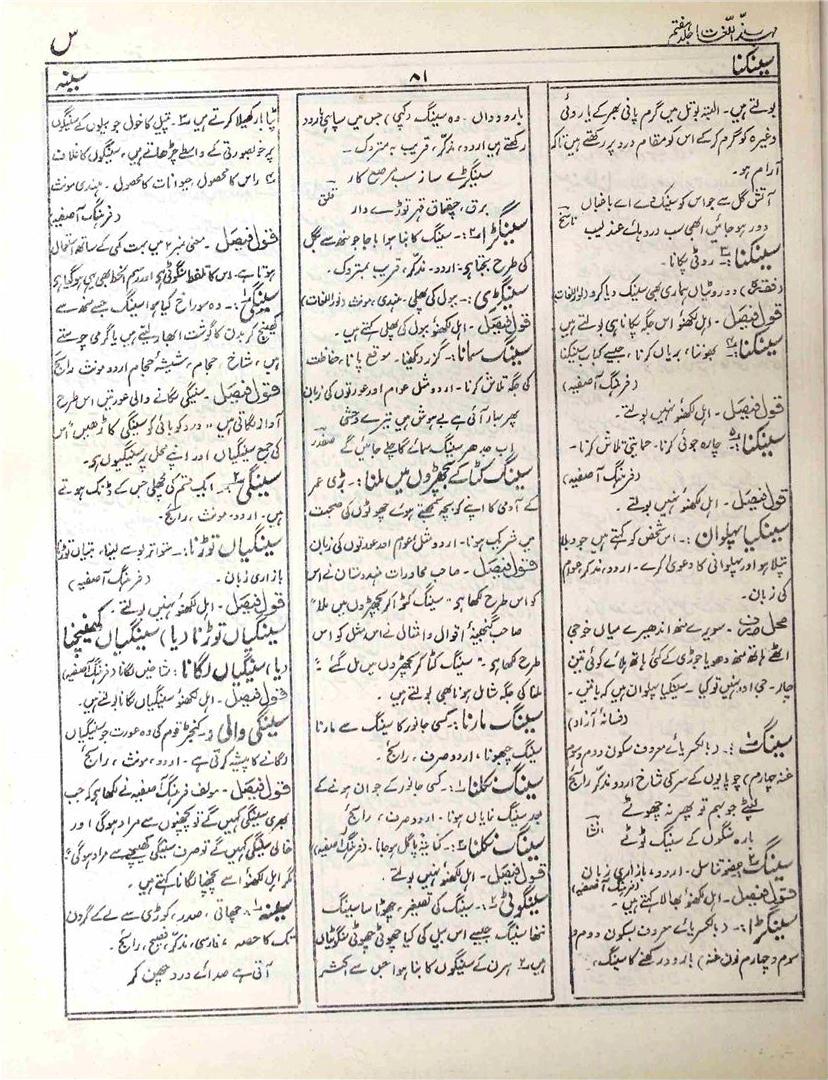 مہذب اللغات جلد ہفتم
س
سینکنا
۸۱
سینہ
بولتے ہیں۔ البتہ بوتل میں گرم پانی بھر کے یا روئی
وغیرہ کو گرم کر کے اس کو مقام درد پر رکھتے ہیں تاکہ
آرام ہو۔
آتش گل سے جو اس کو سینک دے اے باغباں
دور ہو جائیں ابھی سب درد ہائے عندلیب
ناسخ
سینکنا ۳:۔ روٹی پکانا۔
(فقرہ) دو روٹیاں ہماری بھی سینک دیا کرو (نور اللغات)
قول فیصل۔ اہل لکھنؤ اس جگہ پکانا ہی بولتے ہیں
سینکنا ۴:۔ بھوننا، بریاں کرنا، جیسے کباب سینکنا
(فرہنگ آصفیہ)
قول فیصل۔ اہل لکھنؤ نہیں بولتے۔
سینکنا ۵:۔ چارہ جوئی کرنا۔ حمایتی تلاش کرنا۔
(فرہنگ آصفیہ)
قول فیصل۔ اہل لکھنؤ نہیں بولتے۔
سینکیا پہلوان:۔ اس شخص کو کہتے ہیں جو دبلا
پتلا ہو اور پہلوانی کا دعویٰ کرے۔ اردو، مذکر عوام
کی زبان۔
محل صرف۔ سویرے منھ اندھیرے میاں خوجی
اٹھے ہاتھ منھ دھویا جوڑی کے کئی ہاتھ ہلائے کوئی تین
چار۔ جی اور نہیں تو کیا۔ سینکیا پہلوان ہیں کہ باتیں۔
(فسانۂ آزاد)
سینگ ۱:۔ (بالکسر یائے معروف سکون دوم و سوم
غنہ چہارم) چوپایوں کے سر کی شاخ اردو مذکر رائج
لپٹے جو بہم تو پھر نہ چھوٹے
بارہ سنگوں کے سینگ ٹوٹے
انشا
سینگ ۲:۔ عضو تناسل۔ اردو، بازاری زبان
(فرہنگ آصفیہ)
قول فیصل۔ اہل لکھنؤ بھالا کہتے ہیں۔
سینگڑا ۱:۔ (بالکسر یائے معروف سکون دوم و
سوم و چہارم نون غنہ) بارود رکھنے کا سینگ،
بارود داں۔ وہ سینگ (کپی) جس میں سپاہی بارود
رکھتے ہیں اردو، مذکر، قریب بہ متروک۔
سینگڑے ساز سب مرصع کار
برق، چقماق قہر توڑے دار
قلق
سینگڑا ۲:۔ سینگ کا بنا ہوا باجا جو منھ سے بگل
کی طرح بجتا ہے۔ اردو۔ مذکر، قریب بمتروک۔
سینگڑی:۔ ببول کی پھلی۔ ہندی، مونث (نور اللغات)
قول فیصل۔ اہل لکھنؤ ببول کی پھلی کہتے ہیں۔
سینگ سمانا:۔ گزر دیکھنا۔ موقع پانا، حفاظت
کی جگہ تلاش کرنا۔ اردو مثل عوام اور عورتوں کی زبان
پھر بہار آئی ہے بے ہوش ہیں تیرے وحشی
اب جدھر سینگ سمائے گا چلے جائیں گے
صفدر
سینگ کٹا کے بچھڑوں میں ملنا:۔ بڑی عمر
کے آدمی کا اپنے کو بچہ سمجھتے ہوئے چھوٹوں کی صحبت
میں شریک ہونا۔ اردو مثل عوام اور عورتوں کی زبان
قول فیصل۔ صاحب محاورات ہندوستان نے اس
کو اس طرح لکھا ہے "سینگ کٹوا کر بچھڑوں میں ملا"
صاحب گنجینۂ اقوال و امثال نے اس مثل کو اس
طرح لکھا ہے۔ "سینگ کٹا کر بچھڑوں میں مل گئے"۔
ملنا کی جگہ شامل ہونا بھی بولتے ہیں۔
سینگ مارنا:۔ کسی جانور کا سینگ سے مارنا
سینگ چبھونا، اردو صرف، رائج۔
سینگ نکلنا ۱:۔ کسی جانور کے جوان ہونے کے
بعد سینگ نمایاں ہونا۔ اردو صرف، رائج
سینگ نکلنا ۲:۔ کنایۃً پاگل ہو جانا۔ (فرہنگ آصفیہ)
قول فیصل۔ اہل لکھنؤ نہیں بولتے
سینگوٹی ۱:۔ سینگ کی تصغیر۔ چھوٹا سا سینگ
ننھا سینگ جیسے اس بیل کی کیا چھوٹی چھوٹی سنگوٹیاں
ہیں ۲ ہرن کے سینگوں کا بنا ہوا جس سے اکثر
پٹا بار کھیلا کرتے ہیں ۳۔ پیتل کا خول جو بیلوں کے سینگوں
پر خوبصورتی کے واسطے چڑھاتے ہیں، سینگوں کا غلاف
۴ راس کا محصول، حیوانات کا محصول۔ ہندی مونث
(فرہنگ آصفیہ)
قول فیصل۔ معنی نمبر ۲ میں بہت کمی کے ساتھ استعمال
ہوتا ہے۔ اس کا تلفظ سنگوٹی ہے اور رسم الخط بھی یہی ہو گیا ہے
سینگی ۱:۔ وہ سوراخ کیا ہوا سینگ جسے منھ سے
کھینچ کر بدن کا گوشت ابھار لیتے ہیں یا گرمی چوستے
ہیں، شاخ، حجام، شیشۂ حجام اردو مونث رائج
قول فیصل۔ سینگی لگانے والی عورتیں اس طرح
آواز لگاتی ہیں "درد کو بائی کو سینگی کاڑھیں" اس
کی جمع سینگیاں اور اپنے محل پر سینگیوں ہے۔
سینگی ۲:۔ ایک قسم کی مچھلی جس کے ڈنک ہوتے
ہیں۔ اردو، مونث، رائج۔
سینگیاں توڑنا:۔ متواتر بوسے لینا، چپیاں توڑنا
بازاری زبان۔ (فرہنگ آصفیہ)
قول فیصل۔ اہل لکھنؤ نہیں بولتے۔
سینگیاں توڑنا (یا) سینگیاں کھینچنا
(یا) سینگیاں لگانا:۔ شاخیں لگانا (فرہنگ آصفیہ)
قول فیصل۔ اہل لکھنؤ سینگیاں لگانا بولتے ہیں۔
سینگی والی:۔ کنجڑ قوم کی وہ عورت جو سینگیاں
لگانے کا پیشہ کرتی ہے۔ اردو، مونث، رائج
قول فیصل۔ مولف فرہنگ آصفیہ نے لکھا ہے کہ جب
بھری سینگی کہیں گے تو پچھنوں سے مراد ہوگی اور
خالی سینگی کہیں گے تو صرف سینگی کھینچنے سے مراد ہوگی"
مگر اہل لکھنؤ اسے پچھنا لگانا کہتے ہیں۔
سینہ ۱:۔ چھاتی، صدر، کوڑی سے لے کے گردن
تک کا حصہ، فارسی، مذکر، فصیح، رائج۔
آتی ہے صدائے درد چھن کر